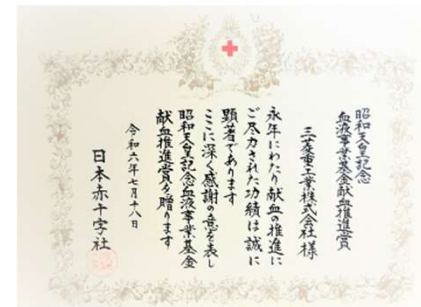 昭和天皇記念
血液事業基金献血推進賞
三菱重工業株式会社 様
永年にわたり献血の推進に
ご尽力された功績は誠に
顕著であります
ここに深く感謝の意を表し
昭和天皇記念血液事業基金
献血推進賞を贈ります
令和六年七月十八日
日本赤十字社